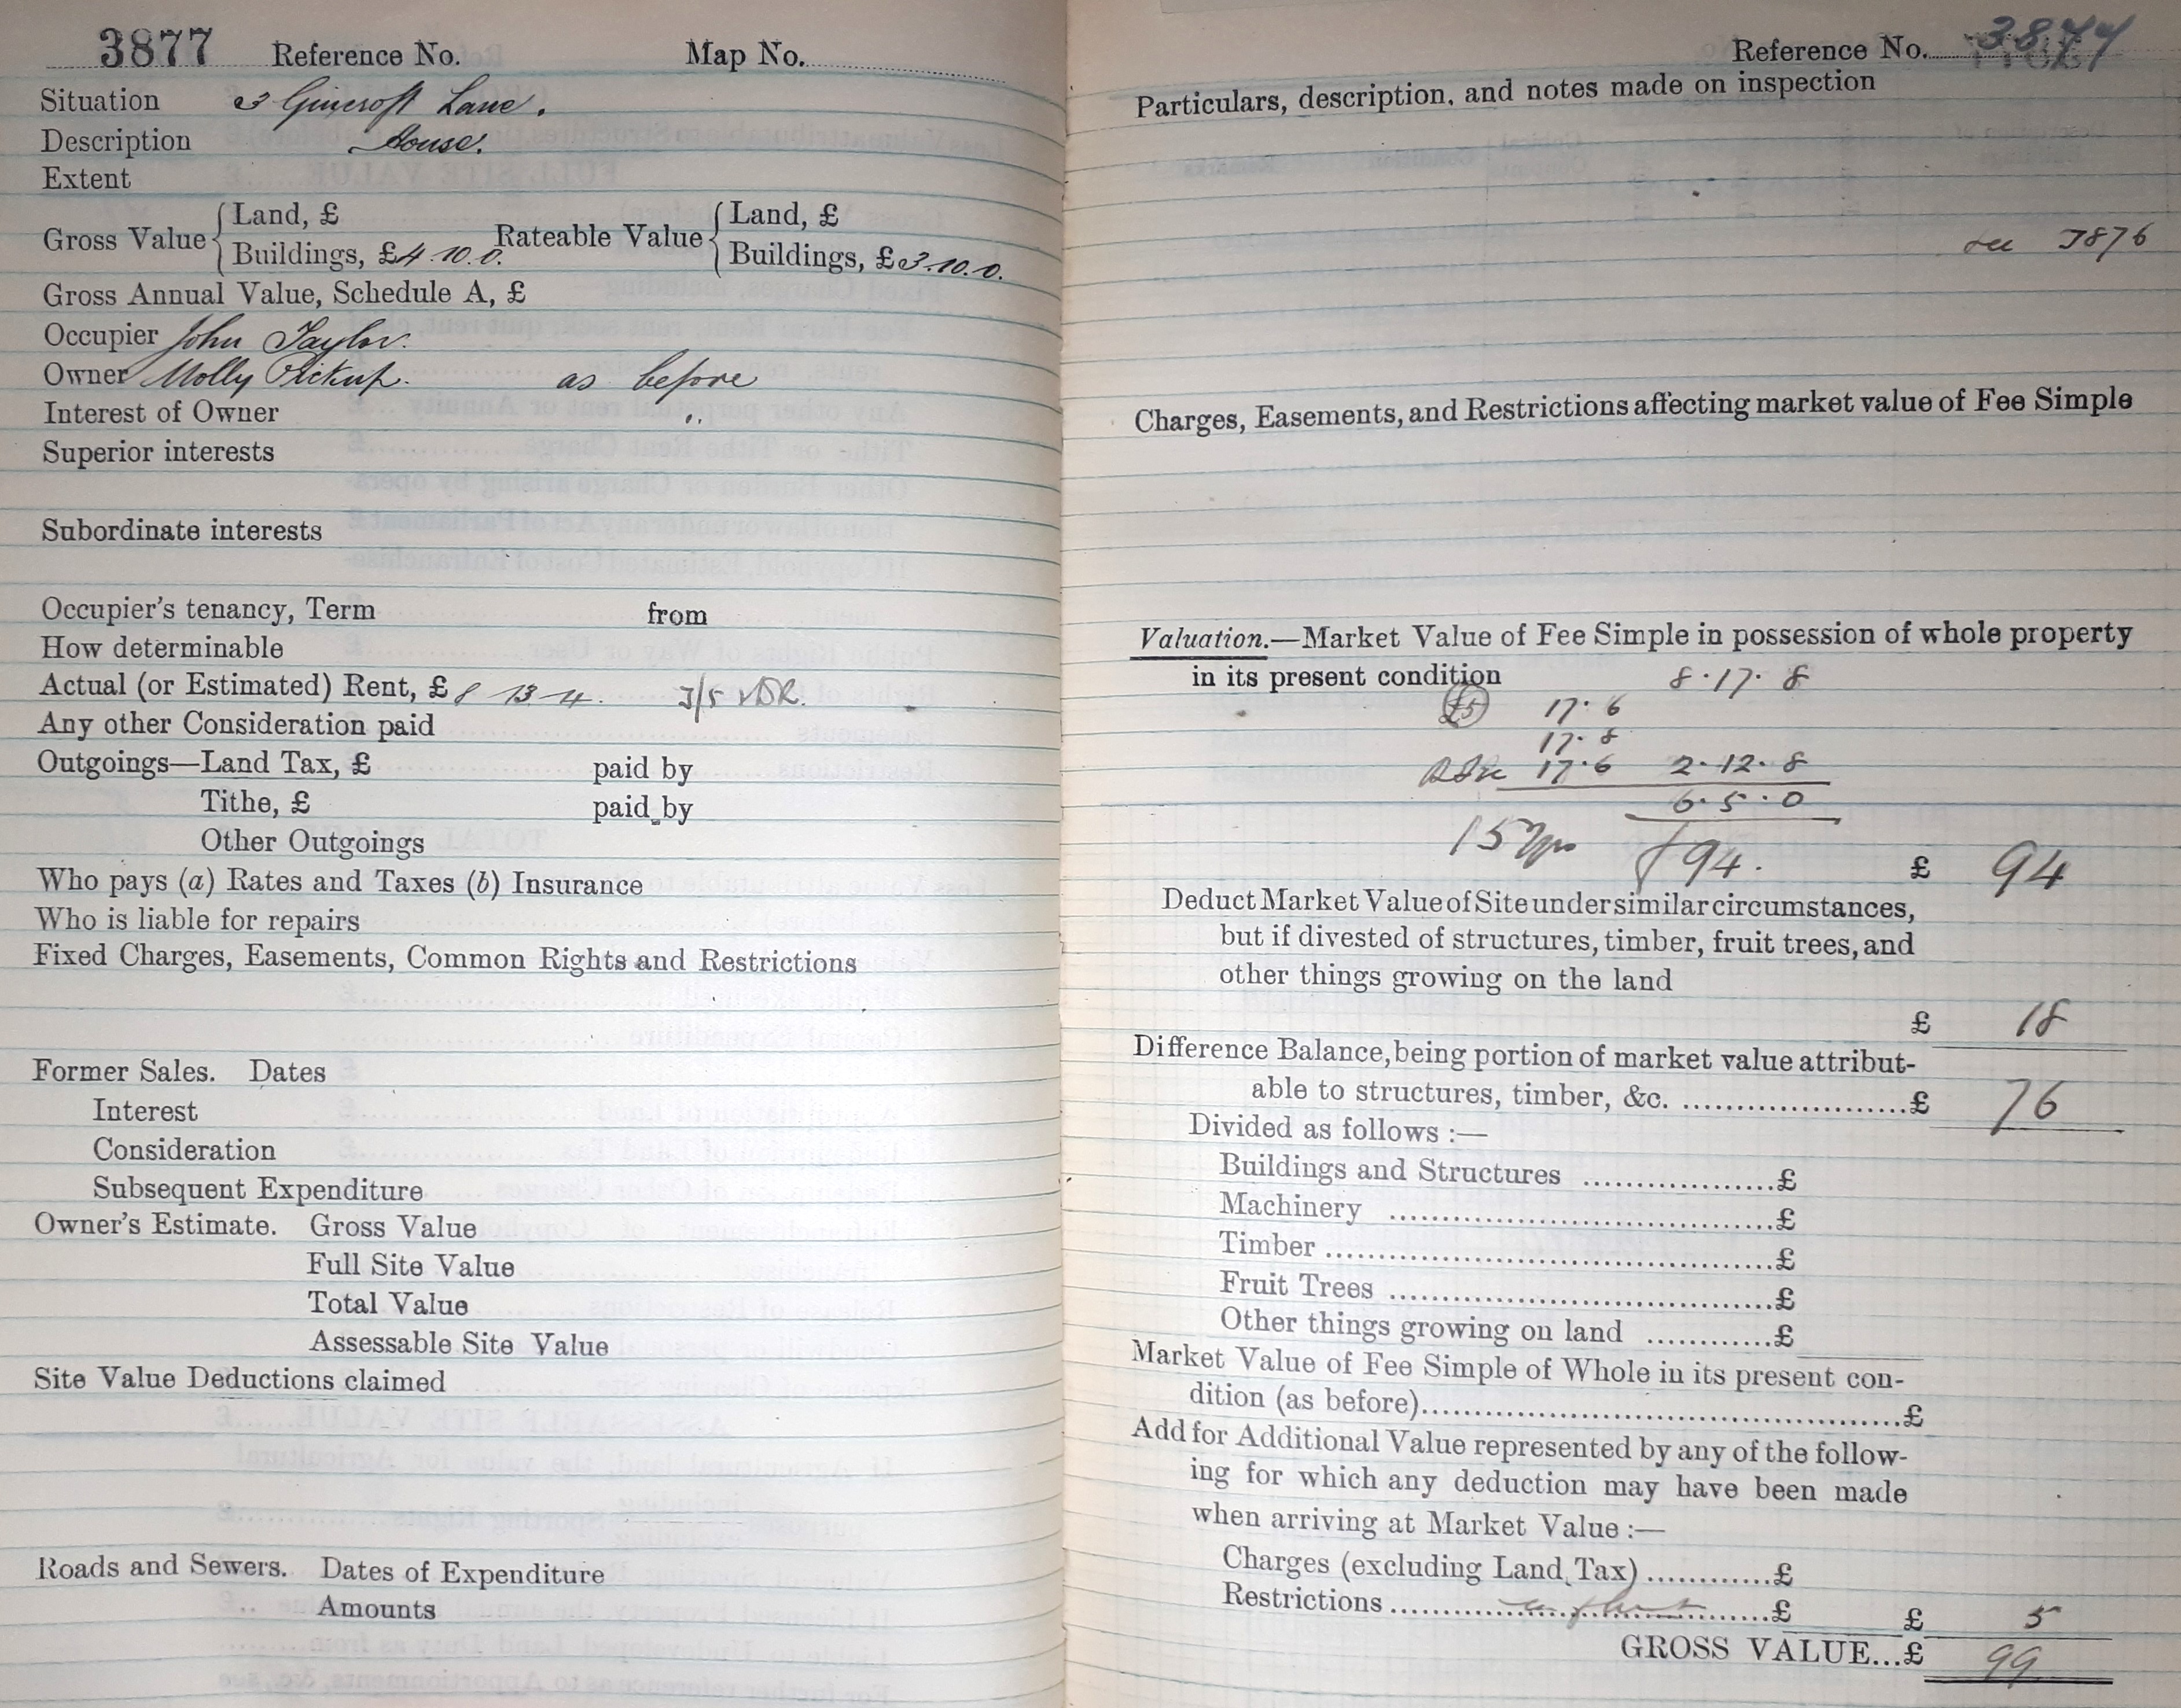 3877 Reference No. Map No.
Situation 3 Gincroft Lane.
Description House.
Extent
Gross Value { Land, £
Buildings, £4.10.0. Rateable Value { Land, £
Buildings, £3.10.0.
Gross Annual Value, Schedule A, £
Occupier John Taylor.
Owner Molly Pickup. as before
Interest of Owner "
Superior interests
Subordinate interests
Occupier's tenancy, Term from
How determinable
Actual (or Estimated) Rent, £8 13 4. 3/5
Any other Consideration paid
Outgoings—Land Tax, £ paid by
Tithe, £ paid by
Other Outgoings
Who pays (a) Rates and Taxes (b) Insurance
Who is liable for repairs
Fixed Charges, Easements, Common Rights and Restrictions
Former Sales. Dates
Interest
Consideration
Subsequent Expenditure
Owner's Estimate. Gross Value
Full Site Value
Total Value
Assessable Site Value
Site Value Deductions claimed
Roads and Sewers. Dates of Expenditure
Amounts
Reference No. 3877
Particulars, description, and notes made on inspection
see 3876
Charges, Easements, and Restrictions affecting market value of Fee Simple
Valuation.—Market Value of Fee Simple in possession of whole property
in its present condition 8.17.8
£5 17.6
17.8
17.6 2.12.8
6.5.0
15 yrs £94. £ 94
Deduct Market Value of Site under similar circumstances,
but if divested of structures, timber, fruit trees, and
other things growing on the land
£ 18
Difference Balance, being portion of market value attribut-
able to structures, timber, &c. £ 76
Divided as follows :—
Buildings and Structures £
Machinery £
Timber £
Fruit Trees £
Other things growing on land £
Market Value of Fee Simple of Whole in its present con-
dition (as before) £
Add for Additional Value represented by any of the follow-
ing for which any deduction may have been made
when arriving at Market Value :—
Charges (excluding Land Tax) £
Restrictions £ £ 5
GROSS VALUE...£ 99